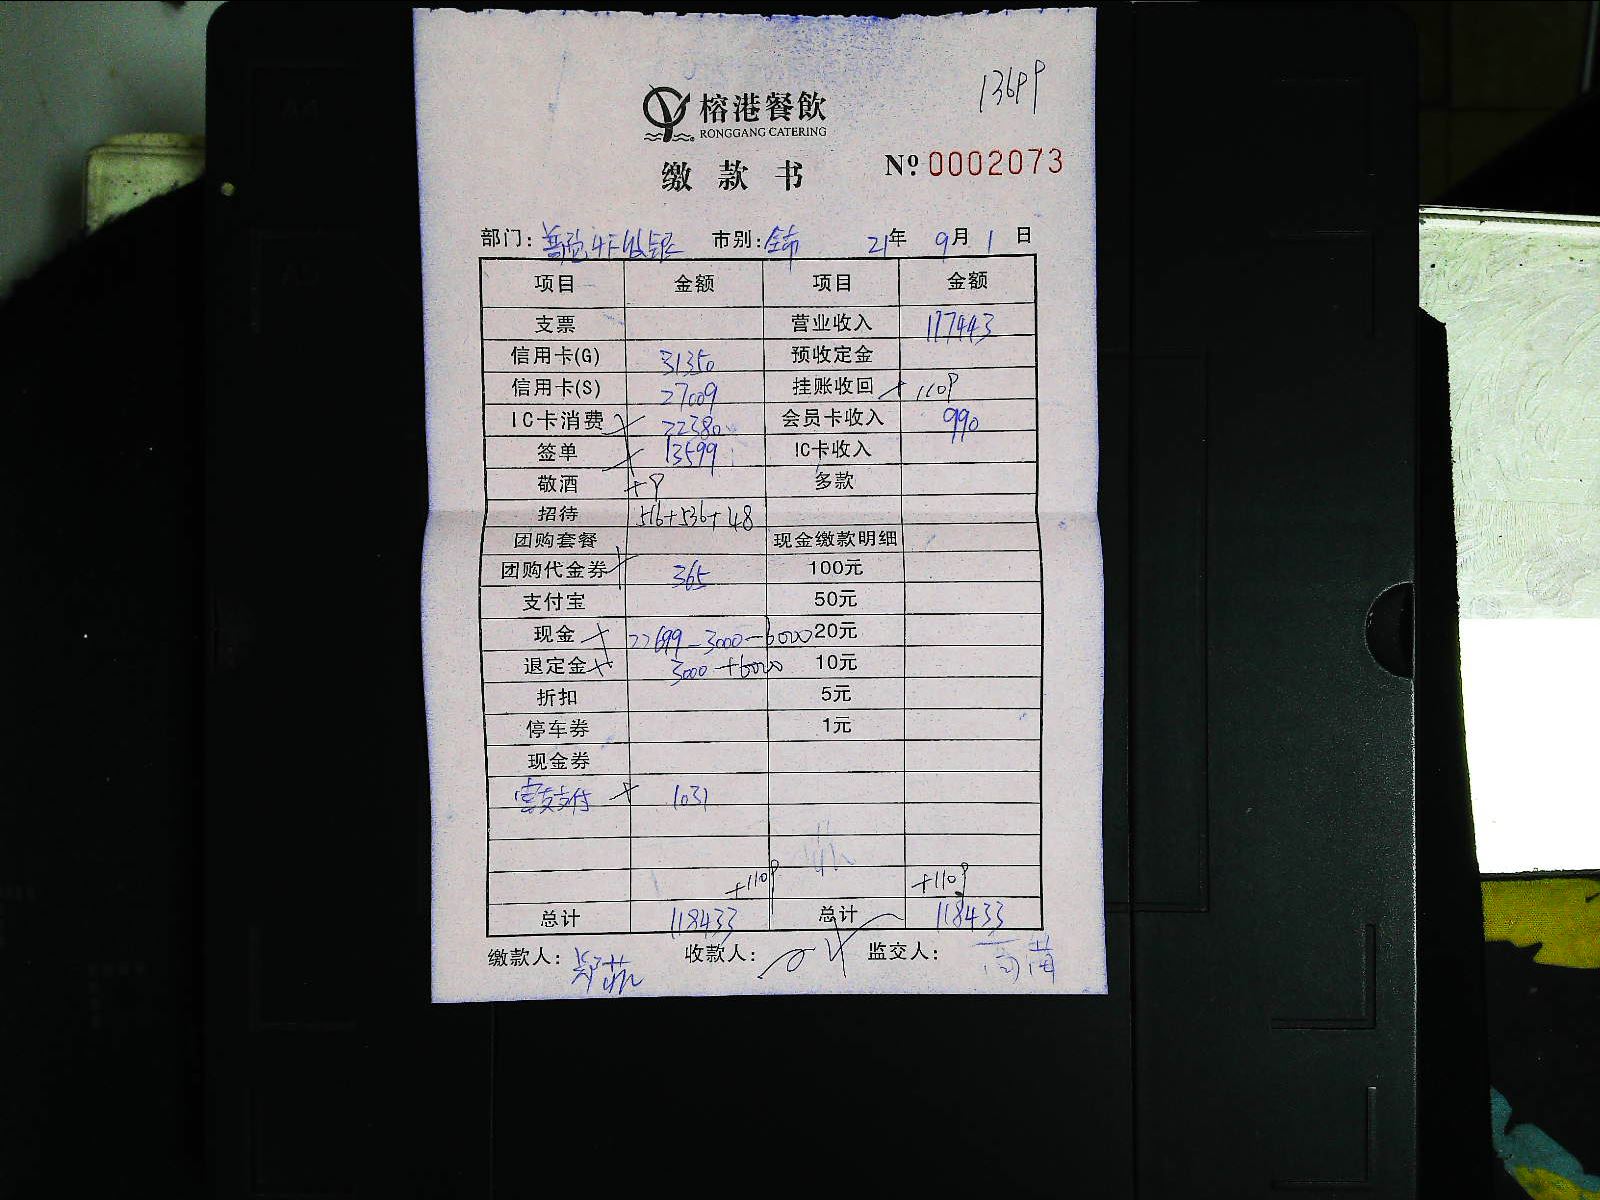 13699
榕港餐飲
RONGGANG CATERING
缴款书
№ 0002073
部门: 市别:全市 21年 9月 1日
项目 金额 项目 金额
支票 营业收入 117443
信用卡(G) 31350 预收定金
信用卡(S) 27009 挂账收回 +1109
IC卡消费 22380 会员卡收入 990
签单 13599 IC卡收入
敬酒 +9 多款
招待 516+536+48
团购套餐 现金缴款明细
团购代金券 365 100元
支付宝 50元
现金 22699-3000-6000 20元
退定金 3000+6000 10元
折扣 5元
停车券 1元
现金券
支付 1031
+1109 +1109
总计 118433 总计 118433
缴款人: 收款人: 监交人: